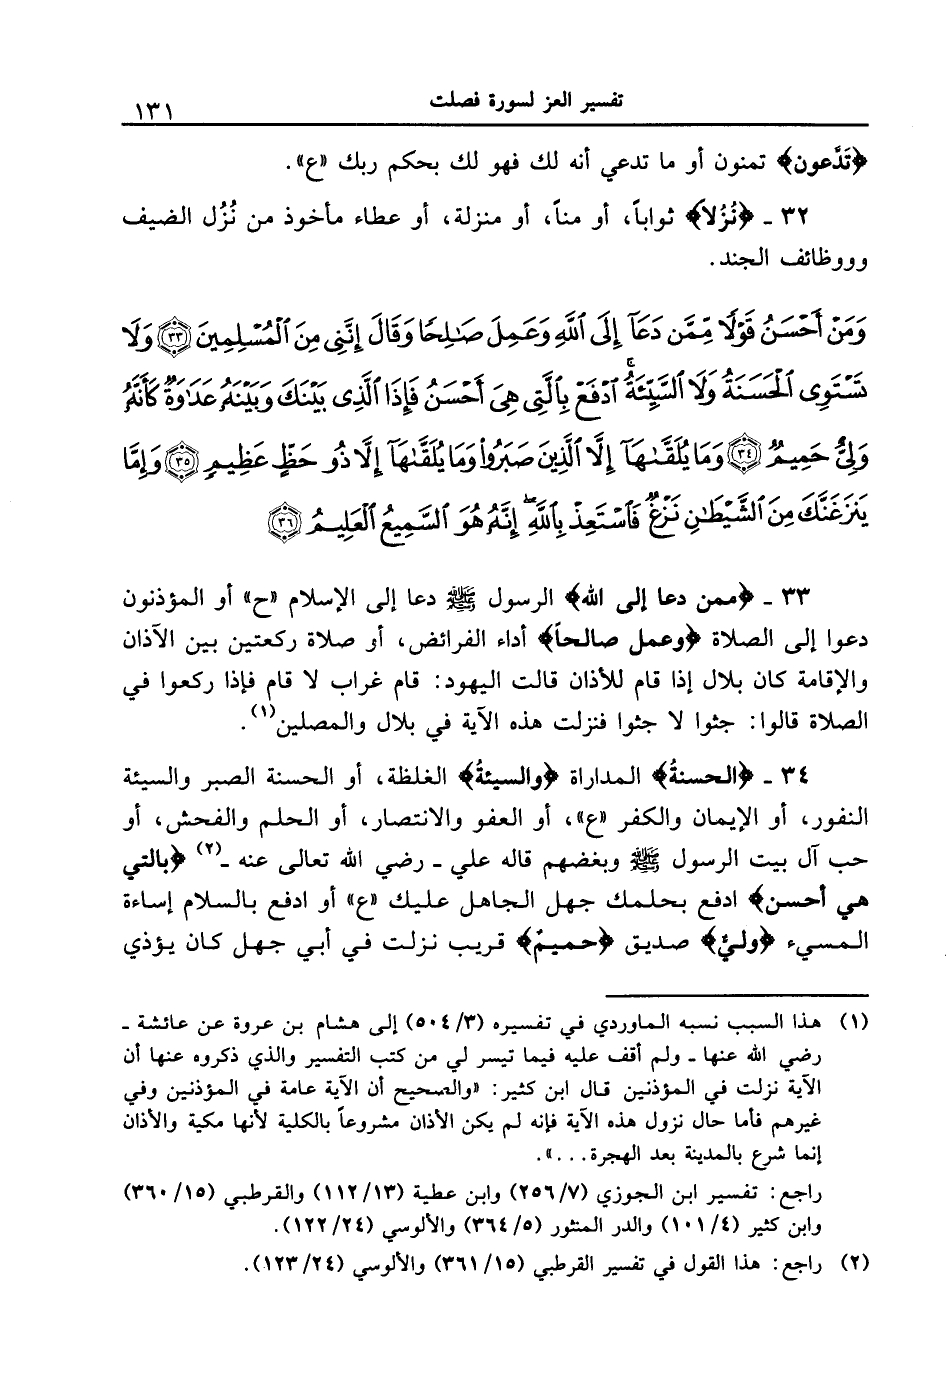 تفسير العز لسورة فصلت ١٣١
﴿تَدَّعون﴾ تمنون أو ما تدعي أنه لك فهو لك بحكم ربك «ع».
٣٢ ـ ﴿نُزُلاً﴾ ثواباً، أو مناً، أو منزلة، أو عطاء مأخوذ من نُزُل الضيف
وووظائف الجند.
وَمَنْ أَحْسَنُ قَوْلًا مِّمَّن دَعَآ إِلَى ٱللَّهِ وَعَمِلَ صَـٰلِحًا وَقَالَ إِنَّنِى مِنَ ٱلْمُسْلِمِينَ ٣٣ وَلَا
تَسْتَوِى ٱلْحَسَنَةُ وَلَا ٱلسَّيِّئَةُ ۚ ٱدْفَعْ بِٱلَّتِى هِىَ أَحْسَنُ فَإِذَا ٱلَّذِى بَيْنَكَ وَبَيْنَهُۥ عَدَٰوَةٌ كَأَنَّهُۥ
وَلِىٌّ حَمِيمٌ ٣٤ وَمَا يُلَقَّىٰهَآ إِلَّا ٱلَّذِينَ صَبَرُوا۟ وَمَا يُلَقَّىٰهَآ إِلَّا ذُو حَظٍّ عَظِيمٍ ٣٥ وَإِمَّا
يَنزَغَنَّكَ مِنَ ٱلشَّيْطَـٰنِ نَزْغٌ فَٱسْتَعِذْ بِٱللَّهِ ۖ إِنَّهُۥ هُوَ ٱلسَّمِيعُ ٱلْعَلِيمُ ٣٦
٣٣ ـ ﴿ممن دعا إلى الله﴾ الرسول ﷺ دعا إلى الإسلام «ح» أو المؤذنون
دعوا إلى الصلاة ﴿وعمل صالحاً﴾ أداء الفرائض، أو صلاة ركعتين بين الآذان
والإقامة كان بلال إذا قام للأذان قالت اليهود: قام غراب لا قام فإذا ركعوا في
الصلاة قالوا: جثوا لا جثوا فنزلت هذه الآية في بلال والمصلين(١).
٣٤ ـ ﴿الحسنةُ﴾ المداراة ﴿والسيئةُ﴾ الغلظة، أو الحسنة الصبر والسيئة
النفور، أو الإيمان والكفر «ع»، أو العفو والانتصار، أو الحلم والفحش، أو
حب آل بيت الرسول ﷺ وبغضهم قاله علي ـ رضي الله تعالى عنه ـ(٢) ﴿بالتي
هي أحسن﴾ ادفع بحلمك جهل الجاهل عليك «ع» أو ادفع بالسلام إساءة
المسيء ﴿وليٌ﴾ صديق ﴿حميمٌ﴾ قريب نزلت في أبي جهل كان يؤذي
(١) هذا السبب نسبه الماوردي في تفسيره (٥٠٤/٣) إلى هشام بن عروة عن عائشة ـ
رضي الله عنها ـ ولم أقف عليه فيما تيسر لي من كتب التفسير والذي ذكروه عنها أن
الآية نزلت في المؤذنين قال ابن كثير: «والصحيح أن الآية عامة في المؤذنين وفي
غيرهم فأما حال نزول هذه الآية فإنه لم يكن الأذان مشروعاً بالكلية لأنها مكية والأذان
إنما شرع بالمدينة بعد الهجرة...».
راجع: تفسير ابن الجوزي (٢٥٦/٧) وابن عطية (١١٢/١٣) والقرطبي (٣٦٠/١٥)
وابن كثير (١٠١/٤) والدر المنثور (٣٦٤/٥) والألوسي (١٢٢/٢٤).
(٢) راجع: هذا القول في تفسير القرطبي (٣٦١/١٥) والألوسي (١٢٣/٢٤).